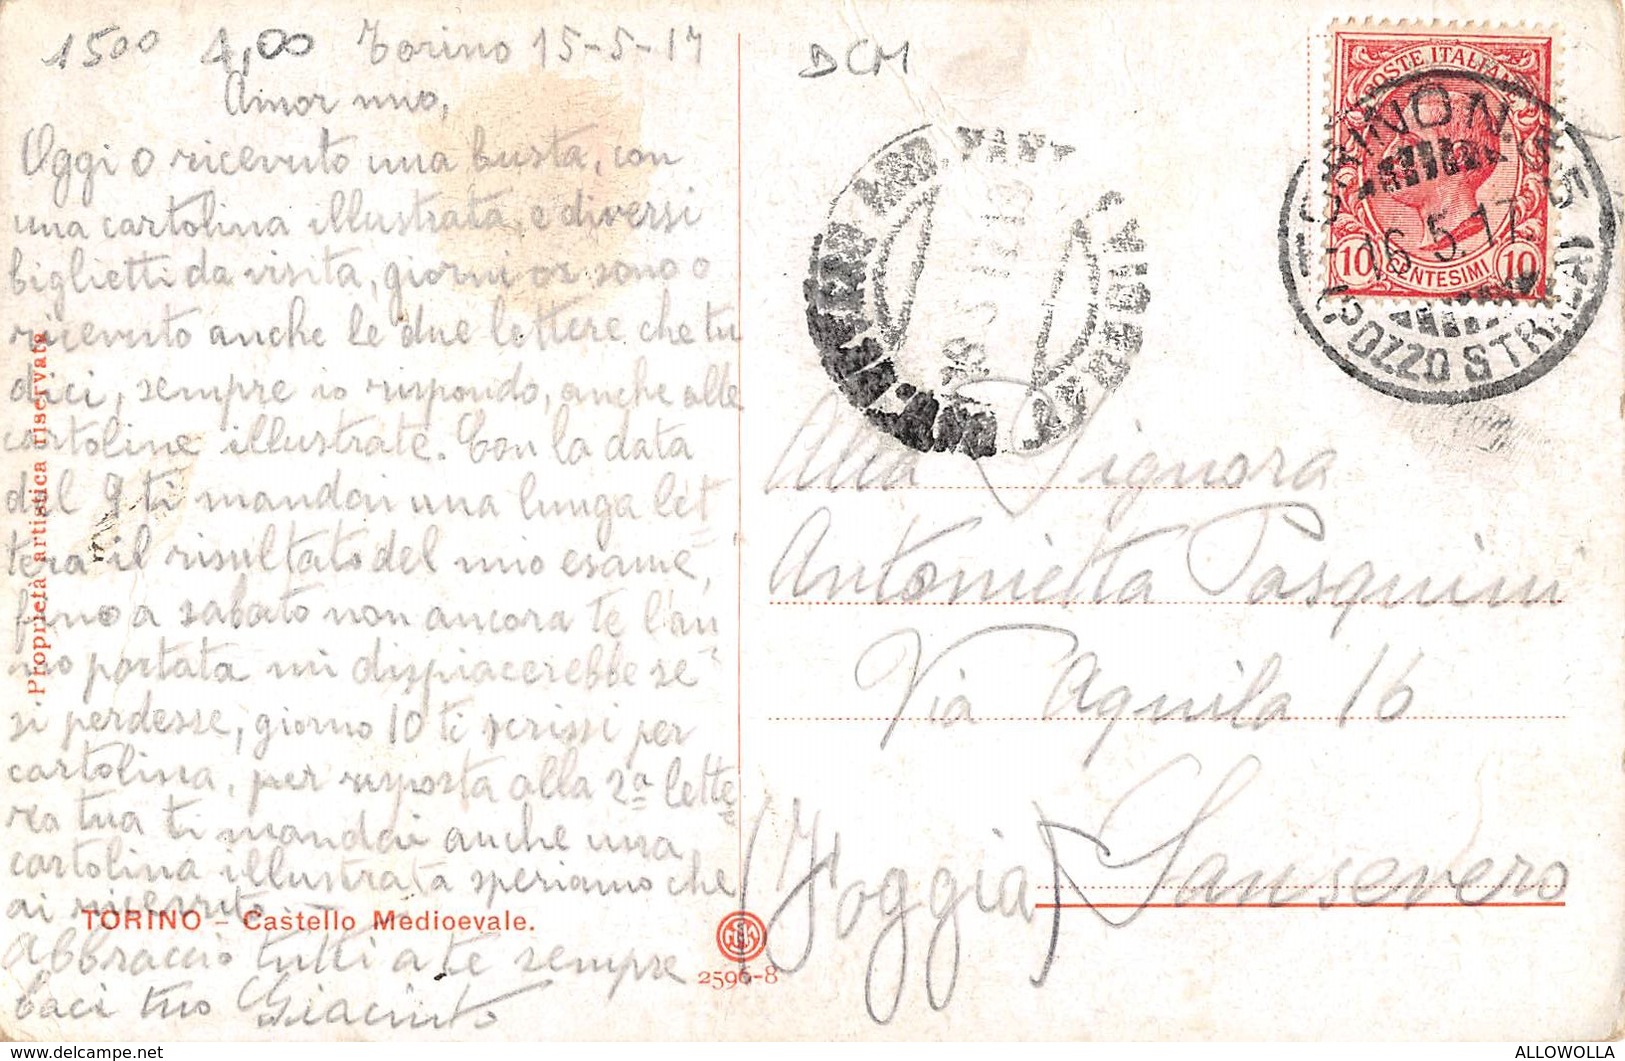 1500 4,00 Torino 15-5-17
DCM
Amor mio,
Oggi o ricevuto una busta, con
una cartolina illustrata, e diversi
biglietti da visita, giorni or sono o
ricevuto anche le due lettere che tu
dici, sempre io rispondo, anche alle
cartoline illustrate. Con la data
del 9 ti mandai una lunga let
tera il risultato del mio esame,
fino a sabato non ancora te l'an
no portata mi dispiacerebbe se
si perdesse, giorno 10 ti scrissi per
cartolina, per risposta alla 2ª lette
ra tua ti mandai anche una
cartolina illustrata speriamo che
ai ricevuto.
Abbraccio tutti a te sempre
baci tuo Giacinto
Proprietà artistica riservata
TORINO - Castello Medioevale.
2596-8
POSTE ITALIANE
10 CENTESIMI 10
TORINO N.
16.5.17
Alla Signora
Antonietta Pasquini
Via Aquila 16
(Foggia) Sansevero
delcampe.net
ALLOWOLLA